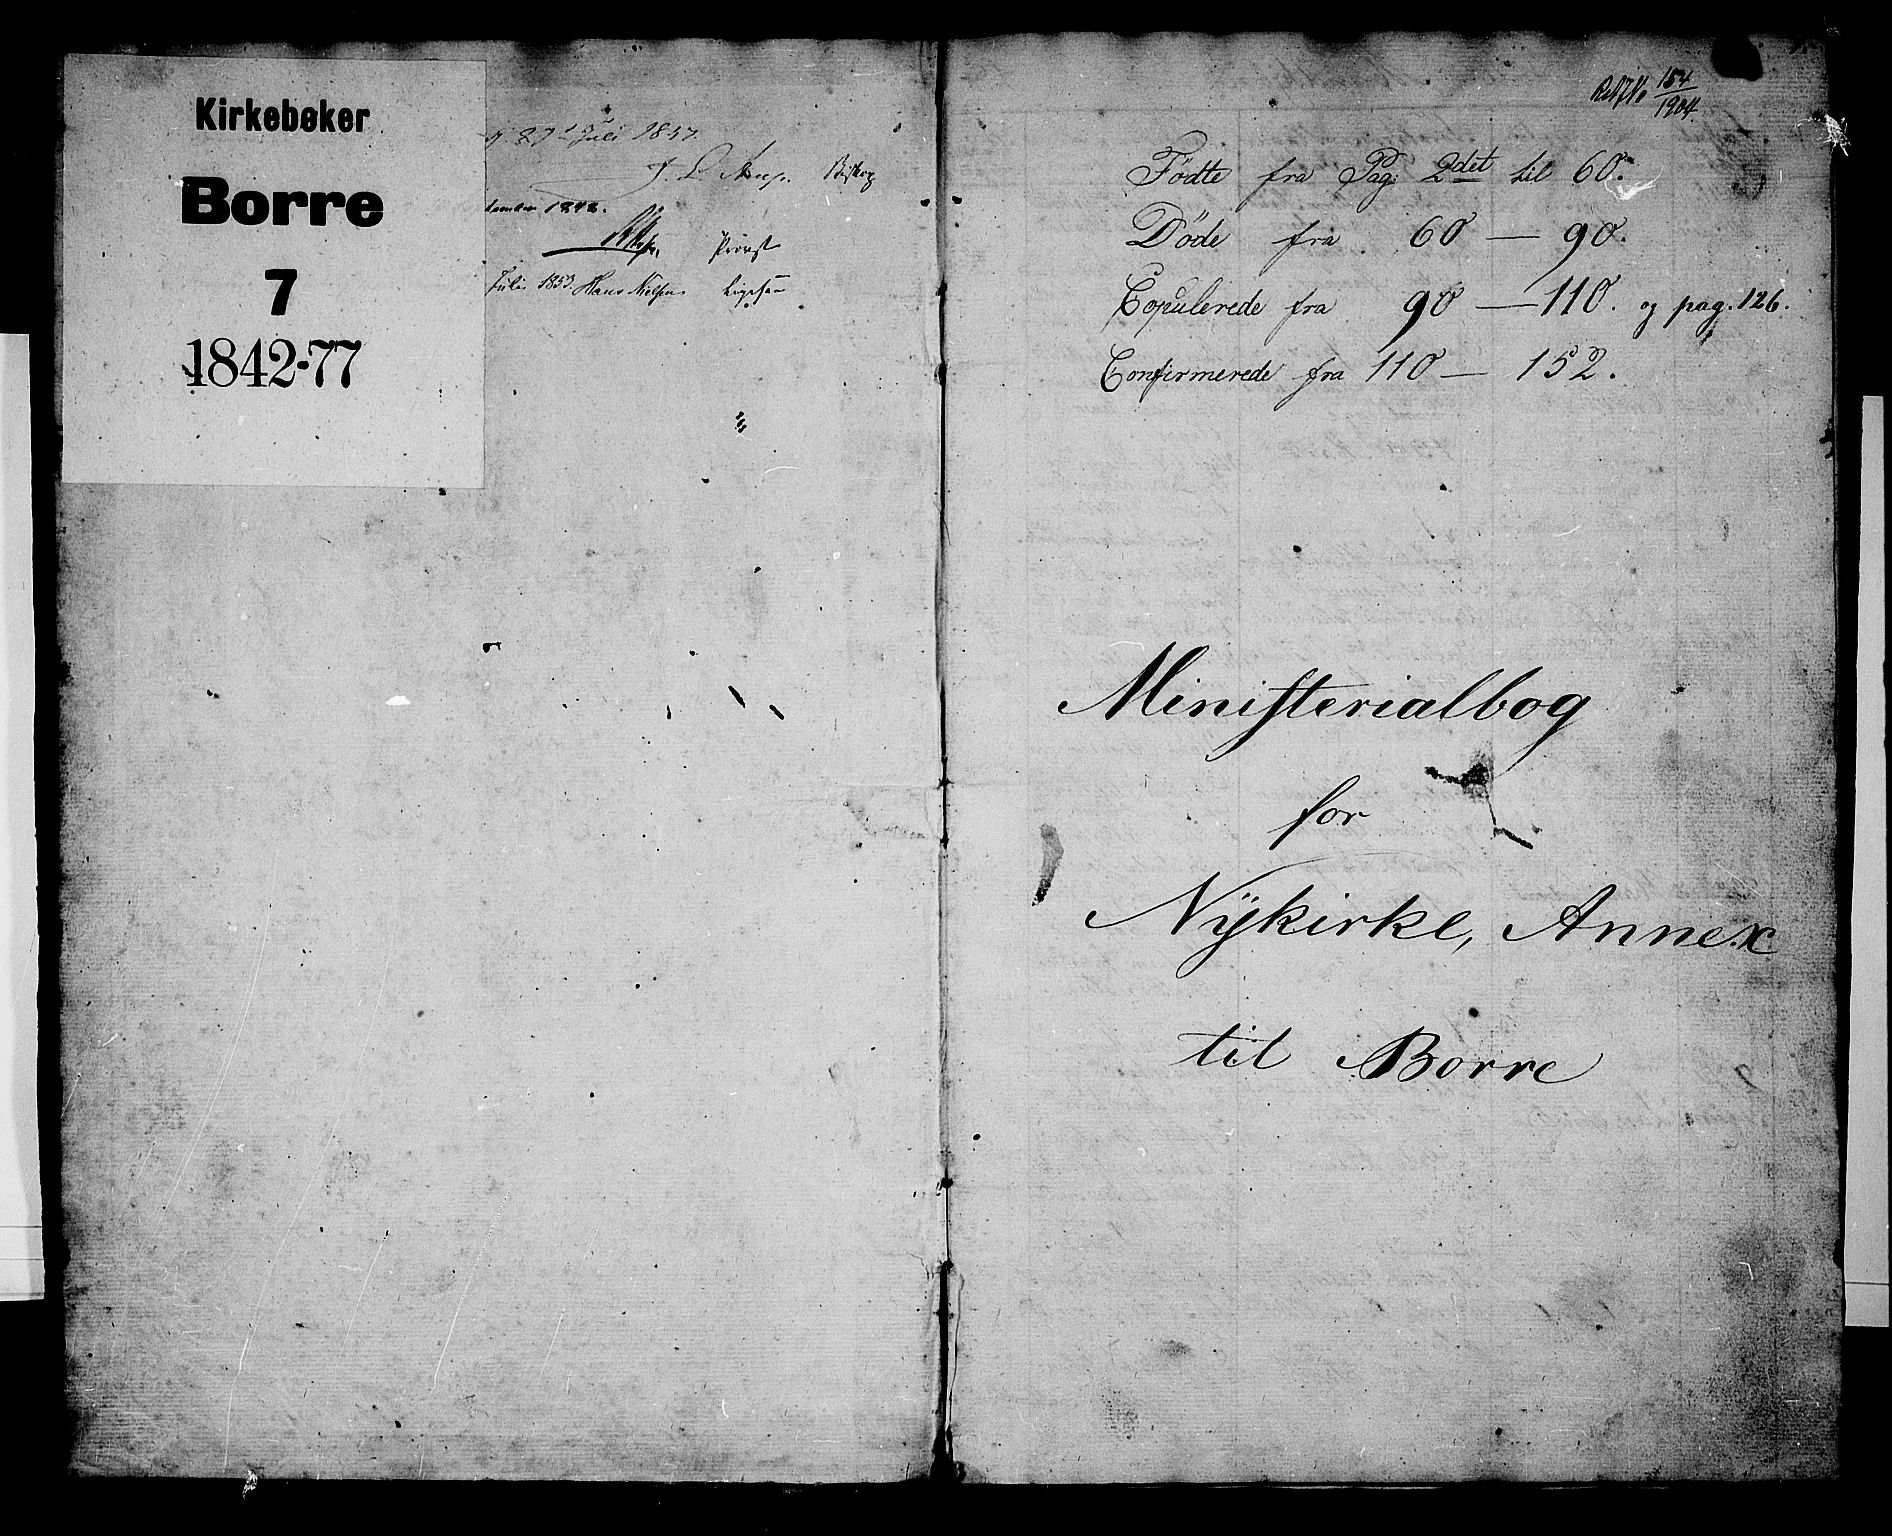 Kirkebøker
Borre
7
1842-77
27 Juli 1857.
J. L. Arup. Biskop
1842.
Provst
Juli 1853. Hans Nielsen
154
1904.
Födte fra Pag: 2det til 60.
Döde fra 60 — 90.
Copulerede fra 90 — 110. og pag. 126.
Confirmerede fra 110 — 152.
Ministerialbog
for
Nÿkirke, Annex
til Borre